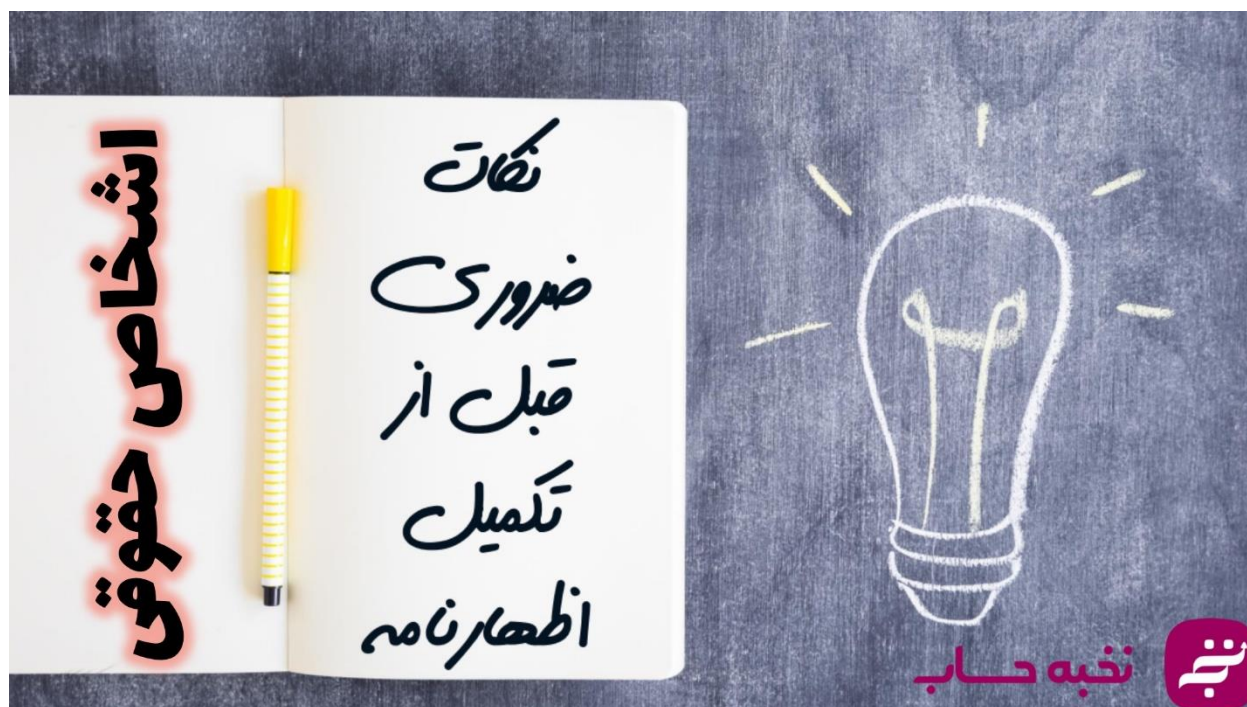 نکات
ضروری
قبل از
تکمیل
اظهارنامه
اشخاص حقوقی
نخبه حساب